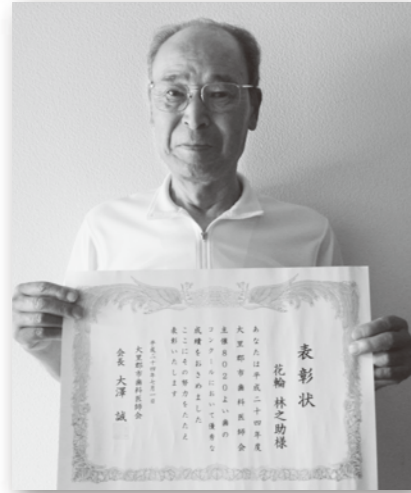 表彰状
花輪 林之助様
あなたは平成二十四年度
大里郡市歯科医師会
主催8020よい歯の
コンクールにおいて優秀な
成績をおさめました
ここにその努力をたたえ
表彰いたします
平成二十四年七月一日
大里郡市歯科医師会
会長 大澤 誠